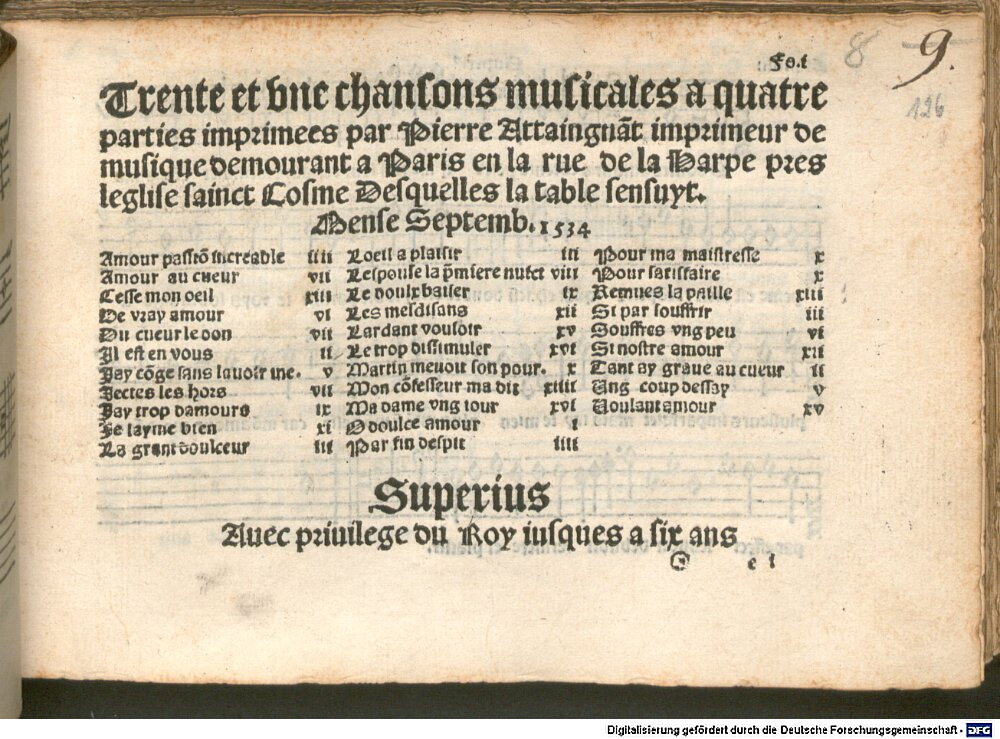 Fo.i
8
9.
126
Trente et vne chansons musicales a quatre
parties imprimees par Pierre Attaingnãt imprimeur de
musique demourant a Paris en la rue de la Harpe pres
leglise sainct Cosme Desquelles la table sensuyt.
Mense Septemb. 1534
Amour passiõ increable iiii
Amour au cueur vii
Cesse mon oeil xiii
De vray amour vi
Du cueur le don vii
Il est en vous ii
Iay cõge sans lauoir me. v
Iectes les hors vii
Iay trop damours ix
Je layme bien xi
La grant doulceur iii
Loeil a plaisir iii
Lespouse la p̃miere nuict viii
Le doulx baiser ix
Les mesdisans xii
Lardant vouloir xv
Le trop dissimuler xvi
Martin menoit son pour. x
Mon cõfesseur ma dit xiiii
Ma dame vng iour xvi
O doulce amour i
Par fin despit iiii
Pour ma maistresse x
Pour satisfaire x
Remues la paille xiii
Si par souffrir iii
Souffres vng peu vi
Si nostre amour xii
Tant ay graue au cueur ii
Ung coup dessay v
Voulant amour xv
Superius
Auec priuilege du Roy iusques a six ans
e i
Digitalisierung gefördert durch die Deutsche Forschungsgemeinschaft - DFG